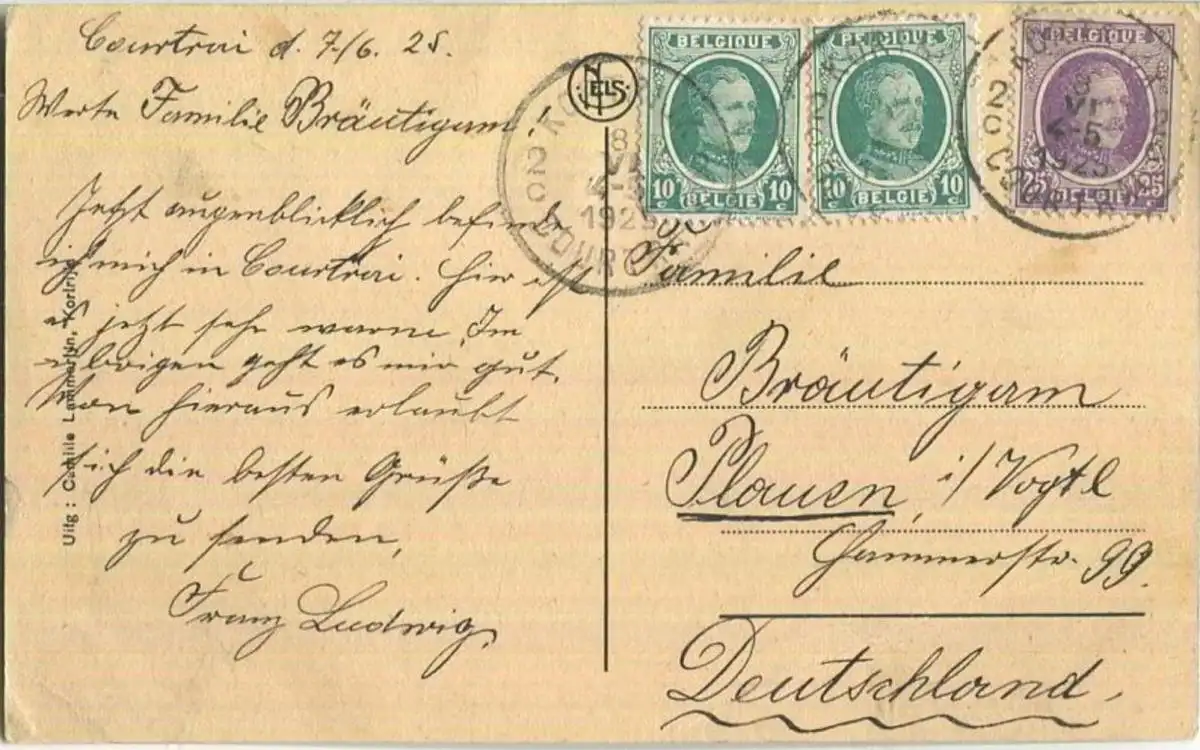 Courtrai d. 7/6. 25.
Werte Familie Bräutigam!
Jetzt augenblicklich befinde
ich mich in Courtrai. Hier ist
es jetzt sehr warm. Im
übrigen geht es mir gut.
Von hieraus erlaubt
sich die besten Grüße
zu senden,
Franz Ludwig.
Uitg : Camille Lammertyn, Kortrijk
NELS
BELGIQUE
10 10
BELGIE
BELGIQUE
10 10
BELGIE
BELGIQUE
25 25
BELGIE
8
VI
1925
2C COURTRAI 2C
VI
4-5
1925
Familie
Bräutigam
Plauen, i/Vogtl
Hammerstr. 99.
Deutschland.